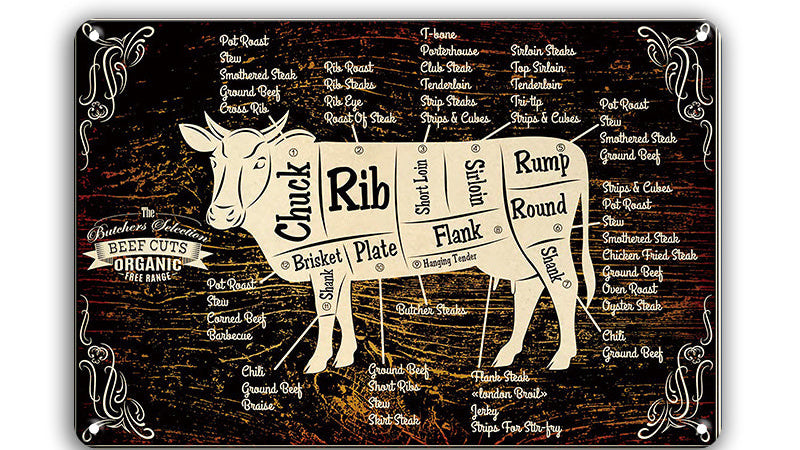 Pot Roast
Stew
Smothered Steak
Ground Beef
Cross Rib
Rib Roast
Rib Steaks
Rib Eye
Roast Of Steak
T-bone
Porterhouse
Club Steak
Tenderloin
Strip Steaks
Strips & Cubes
Sirloin Steaks
Top Sirloin
Tenderloin
Tri-tip
Strips & Cubes
Pot Roast
Stew
Smothered Steak
Ground Beef
1
Chuck
2
Rib
3
Short Loin
4
Sirloin
5
Rump
Round
6
Flank 8
9 Hanging Tender
12
Brisket
Plate
10
Shank
11
Shank
7
The
Butchers Selection
BEEF CUTS
ORGANIC
FREE RANGE
Strips & Cubes
Pot Roast
Stew
Smothered Steak
Chicken Fried Steak
Ground Beef
Oven Roast
Oyster Steak
Pot Roast
Stew
Corned Beef
Barbecue
Butcher Steaks
Chili
Ground Beef
Chili
Ground Beef
Braise
Ground Beef
Short Ribs
Stew
Skirt Steak
Flank Steak
«london Broil»
Jerky
Strips For Stir-fry